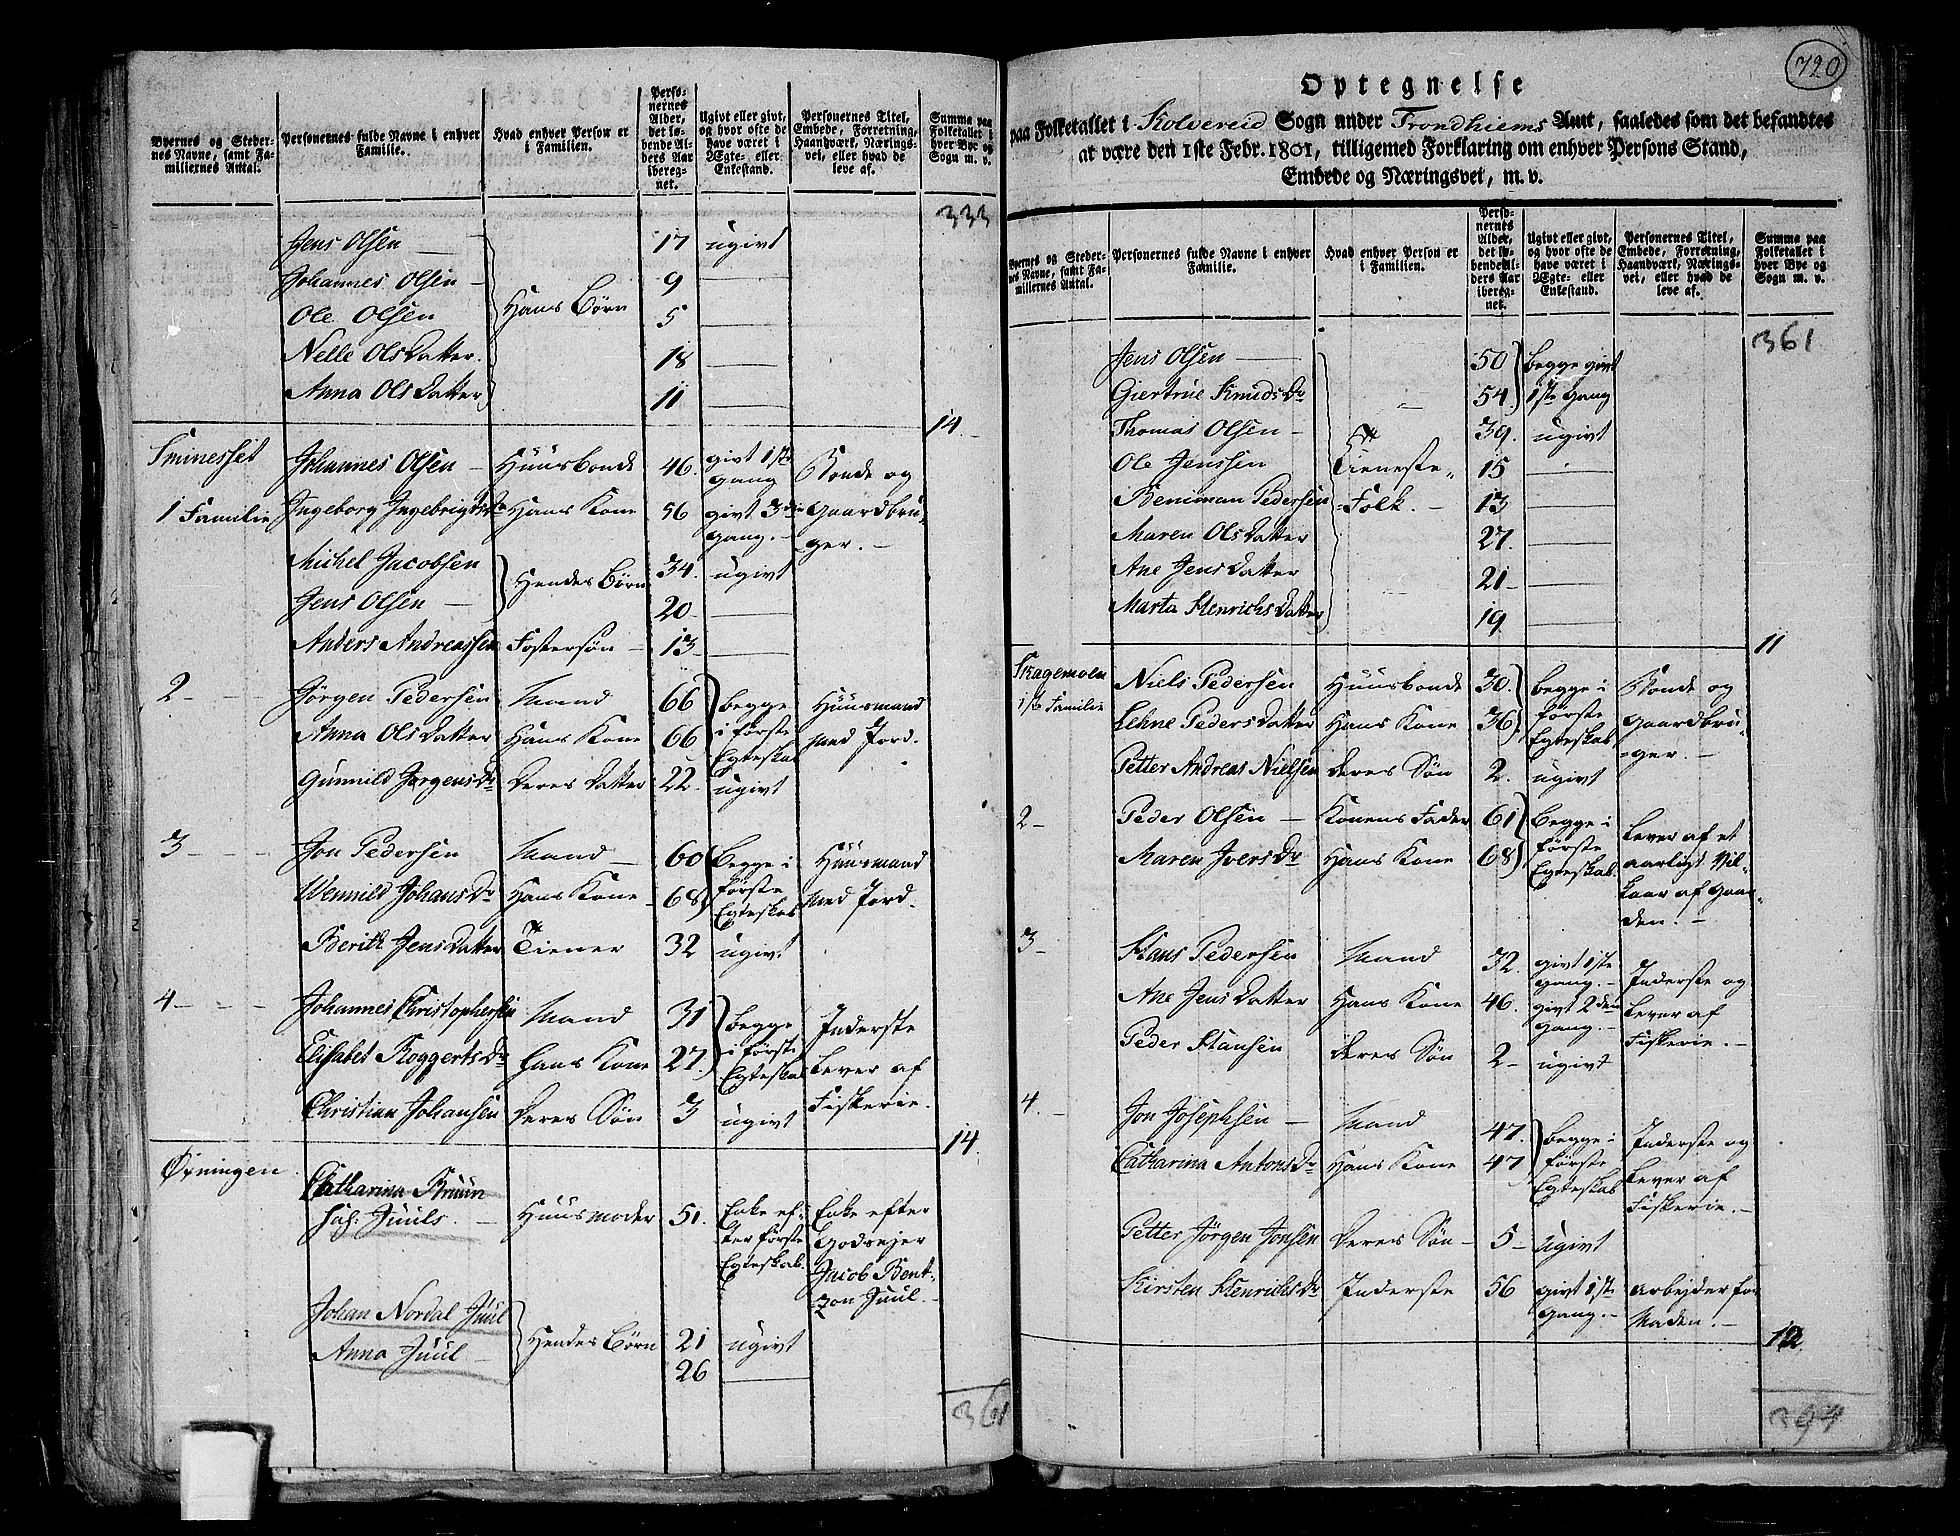 Byernes og Steder-
nes Navne, samt Fa-
miliernes Antal.
Personernes fulde Navne i enhver
Familie.
Hvad enhver Person er
i Familien.
Perso-
nernes
Alder,
det lø-
bende Al-
ders Aar
ibereg-
net.
Ugivt eller givt,
og hvor ofte de
have været i
Ægte- eller
Enkestand.
Personernes Titel,
Embede, Forretning,
Haandværk, Nærings-
vei, eller hvad de
leve af.
Summa paa
Folketallet i
hver Bye og
Sogn m. v.
333
Jens Olsen 17 ugivt
Johannes Olsen 9
Ole Olsen Hans Børn 5
Nelle Olsdatter 18
Anna Olsdatter 11
14
Johannes Olsen Huusbonde 46. givt 1ste gang Bonde og
1 Familie Ingeborg Ingebrigtsdr Hans Kone 56 givt 3die gang. Gaardbru-
ger.
Michel Jacobsen Hendes Børn 34. ugivt
Jens Olsen 20
Anders Andreassen Fostersøn 13
2 Jörgen Pedersen Mand 66 begge Huusmand
Anna Olsdatter Hans Kone 66 i første Egteskab med Jord.
Gunnild Jørgensdr Deres Datter 22 ugivt
3 Jon Pedersen Mand 60 begge i Huusmand
Wennild Johansdr Hans Kone 68 første Egteskab med Jord.
Berith Jensdatter Tiener 32 ugivt
4 Johannes Christophersen Mand 31 begge Inderste
Elisabet Roggertsdr Hans Kone 27. i første Egteskab lever af
Christian Johansen Deres Søn 3 ugivt Fiskerie.
14
Øxningen Catharina Bruun
Sal: Juuls. Huusmoder 51. Enke ef-
ter første
Egteskab. Enke efter
Godsejer
Jacob Bent-
zon Juul.
Johan Nordal Juul Hendes Børn 21 ugivt
Anna Juul 26
361
720
Optegnelse
paa Folketallet i Kolvereid Sogn under Trondhiems Amt, saaledes som det befandtes
at være den 1ste Febr. 1801, tilligemed Forklaring om enhver Persons Stand,
Embede og Næringsvei, m. v.
Byernes og Steder-
nes Navne, samt Fa-
miliernes Antal.
Personernes fulde Navne i enhver
Familie.
Hvad enhver Person er
i Familien.
Perso-
nernes
Alder,
det lø-
bende Al-
ders Aar
ibereg-
net.
Ugivt eller givt,
og hvor ofte de
have været i
Ægte- eller
Enkestand.
Personernes Titel,
Embede, Forretning,
Haandværk, Nærings-
vei, eller hvad de
leve af.
Summa paa
Folketallet i
hver Bye og
Sogn m. v.
361
Jens Olsen 50 begge givt
Giertrue Knudsdr 54. 1ste Gang
Thomas Olsen 39. ugivt
Ole Jenssen Tieneste 15
Beniman Pedersen Folk. 13
Maren Olsdatter 27.
Ane Jensdatter 21
Marta Henrichsdatter 19
11
Skagemoen Niels Pedersen Huusbonde 30. begge i Bonde og
1ste Familie Lehne Pedersdatter Hans Kone 36 første Egteskab Gaardbru-
Petter Andreas Nielsen Deres Søn 2. ugivt ger.
2 Peder Olsen Konens Fader 61 Begge i Lever af et
Maren Iversdr Hans Kone 68 første Egteskab. aarligt Vil-
kaar af Gaar-
den.
3 Hans Pedersen Mand 32. givt 1ste Gang. Inderste og
Ane Jensdatter Hans Kone 46. givt 2den Gang. lever af
Peder Hansen Deres Søn 2 ugivt Fiskerie.
4. Jon Josephsen Mand 47. begge i Inderste og
Catharina Antonsdr Hans Kone 47 første Egteskab lever af
Fiskerie.
Petter Jörgen Jonsen Deres Søn 5 ugivt
Kirsten Henrichsdr Inderste 56 givt 1ste Gang. Arbejder for
Maden.
12
394